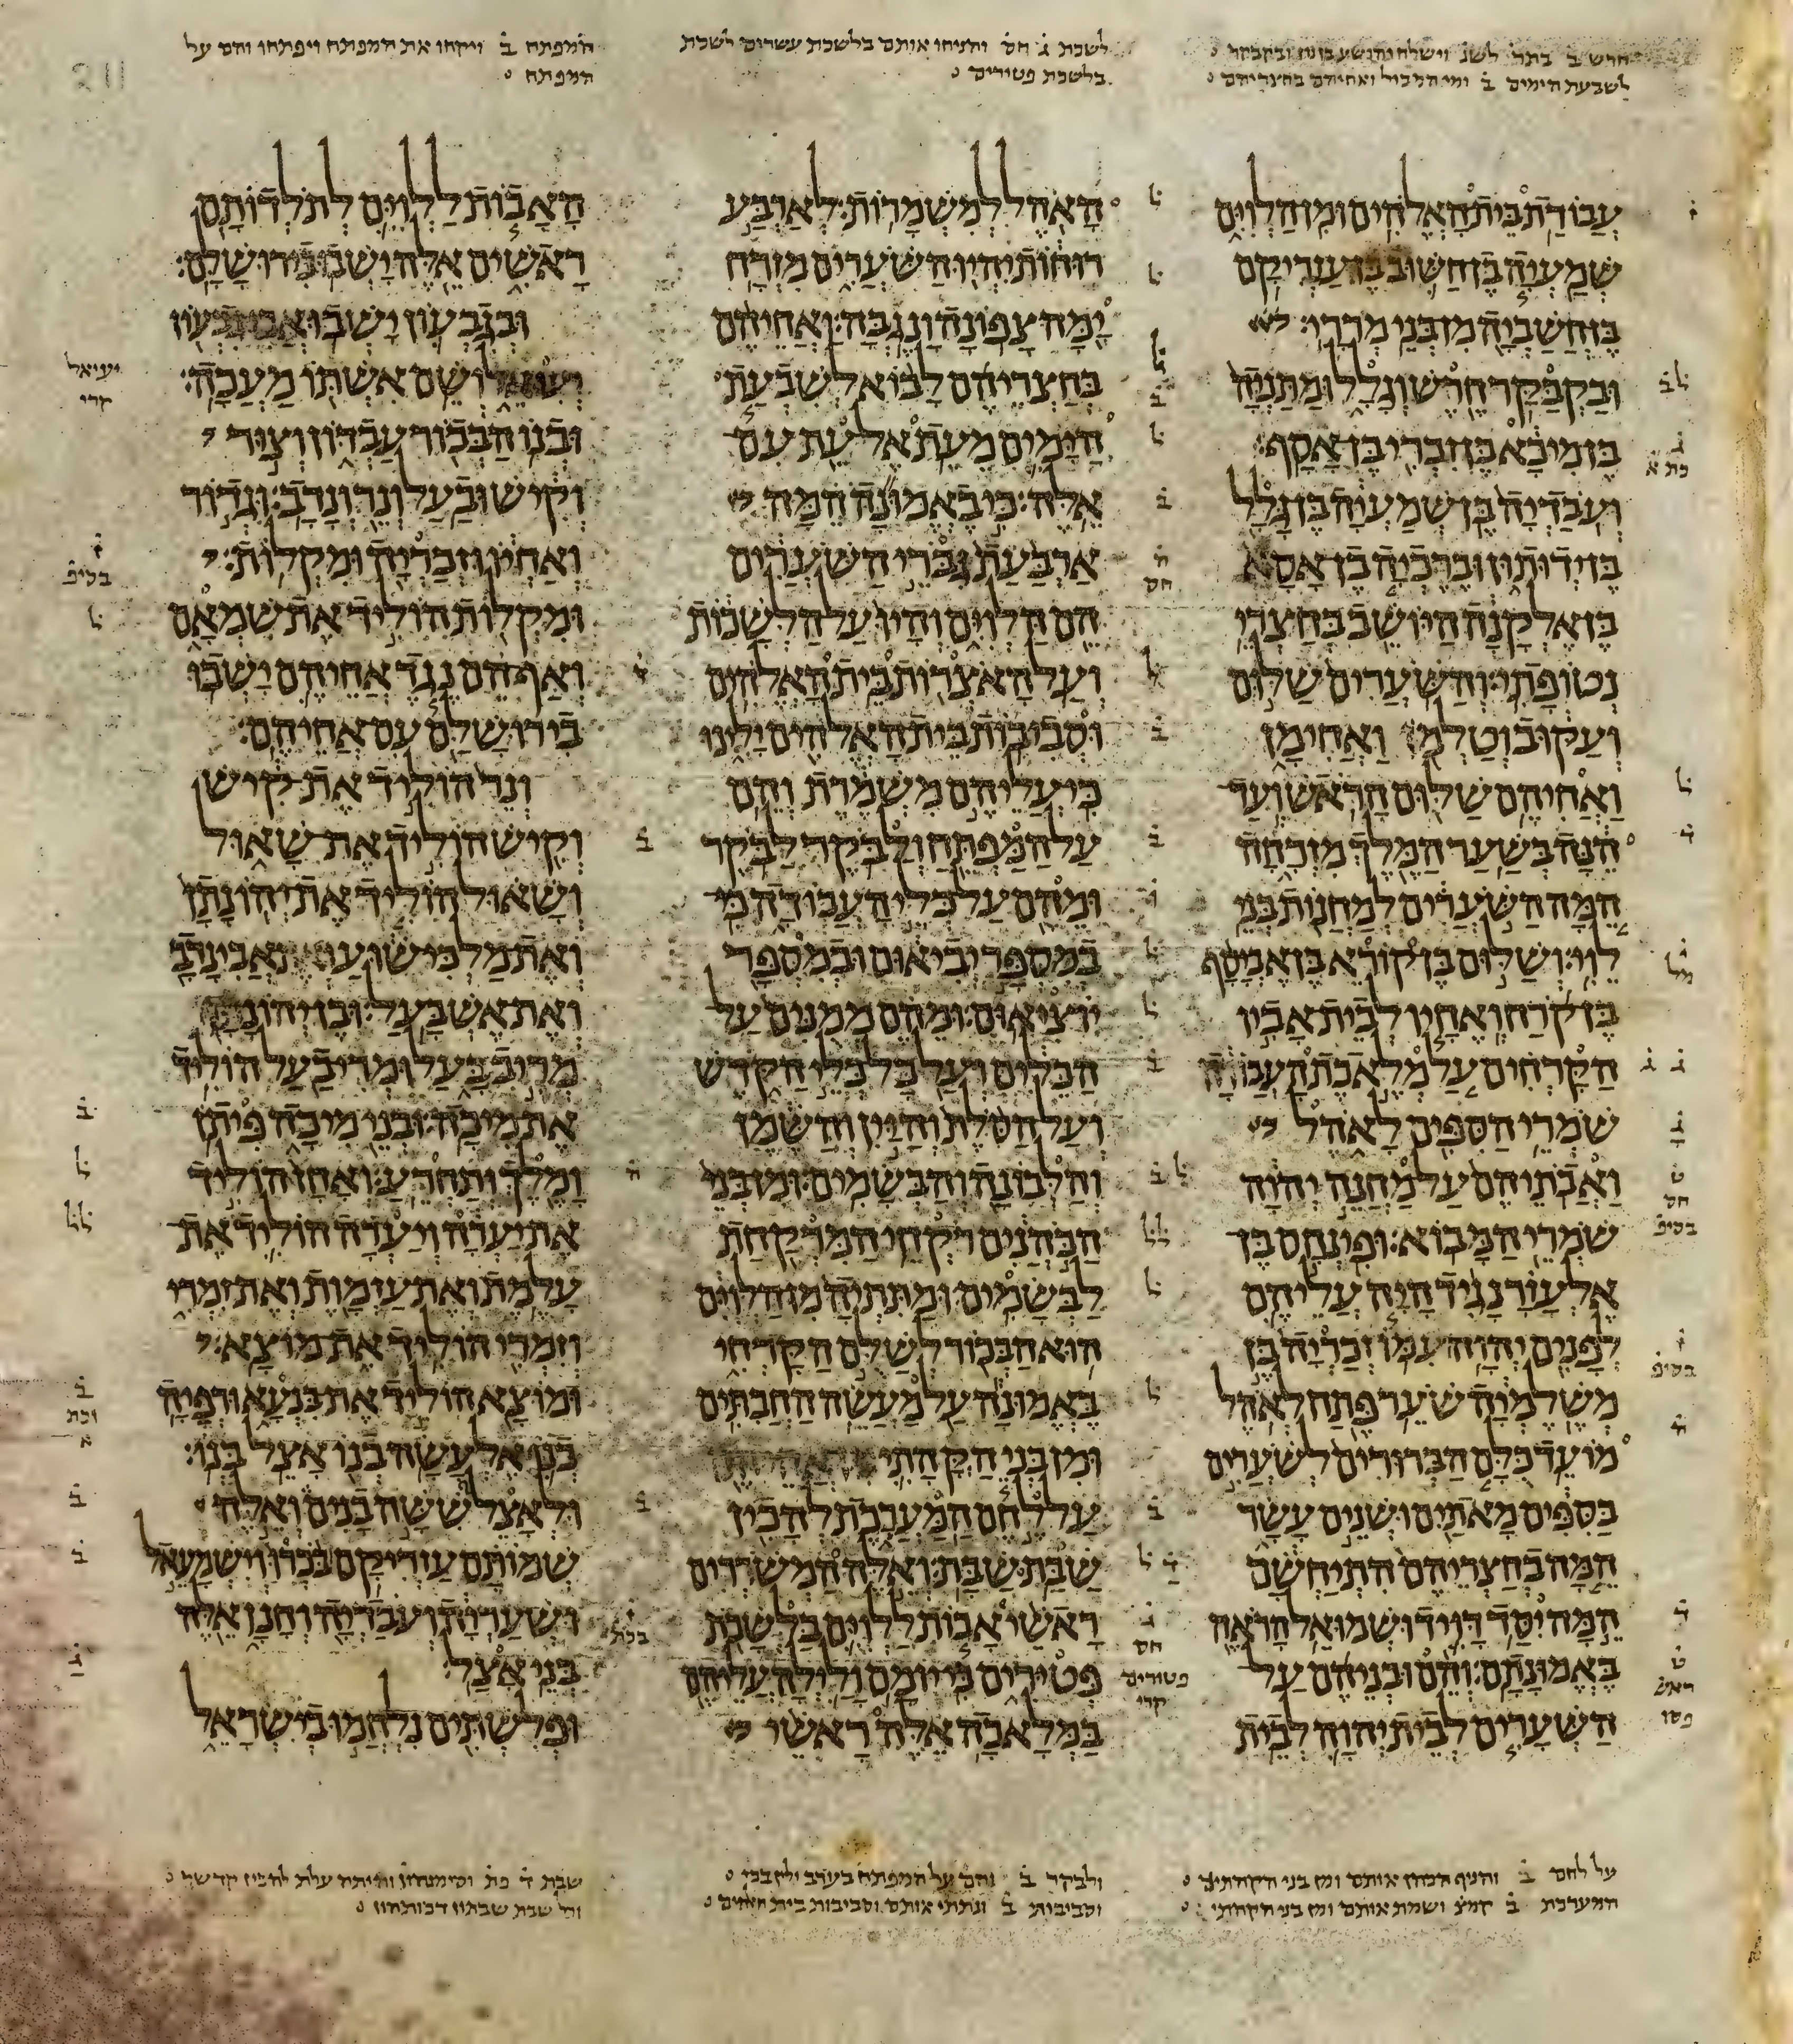 חרש ב בתר לשנ וישלח יהושע בן נון ובקבקר
לשבעת הימים ב ומי המבול ואחיהם בחצריהם
לשכת ג חס והניחו אותם בלשכת עשרים לשכת
בלשכת פטירים
המפתח ב ויקחו את המפתח ויפתחו והם על
המפתח
עבודת בית האלהים ומן הלוים
שמעיה בן חשוב בן עזריקם
בן חשביה מן בני מררי
ובקבקר חרש וגלל ומתניה
בן מיכא בן זכרי בן אסף
ועבדיה בן שמעיה בן גלל
בן ידותון וברכיה בן אסא
בן אלקנה היושב בחצרי
נטופתי והשערים שלום
ועקוב וטלמן ואחימן
ואחיהם שלום הראש ועד
הנה בשער המלך מזרחה
המה השערים למחנות בני
לוי ושלום בן קורא בן אביסף
בן קרח ואחיו לבית אביו
הקרחים על מלאכת העבודה
שמרי הספים לאהל
ואבתיהם על מחנה יהוה
שמרי המבוא ופינחס בן
אלעזר נגיד היה עליהם
לפנים יהוה עמו זכריה בן
משלמיה שער פתח לאהל
מועד כלם הברורים לשערים
בספים מאתים ושנים עשר
המה בחצריהם התיחשם
המה יסד דויד ושמואל הראה
באמונתם והם ובניהם על
השערים לבית יהוה לבית
האהל למשמרות לארבע
רוחות יהיו השערים מזרח
ימה צפונה ונגבה ואחיהם
בחצריהם לבוא לשבעת
הימים מעת אל עת עם
אלה כי באמונה המה
ארבעת גברי השערים
הם הלוים והיו על הלשכות
ועל האצרות בית האלהים
וסביבות בית האלהים ילינו
כי עליהם משמרת והם
על המפתח ולבקר לבקר
ומהם על כלי העבודה כי
במספר יביאום ובמספר
יוציאום ומהם ממנים על
הכלים ועל כל כלי הקדש
ועל הסלת והיין והשמן
והלבונה והבשמים ומן בני
הכהנים רקחי המרקחת
לבשמים ומתתיה מן הלוים
הוא הבכור לשלם הקרחי
באמונה על מעשה החבתים
ומן בני הקהתי
על לחם המערכת להכין
שבת שבת ואלה המשררים
ראשי אבות ללוים בלשכת
פטירים כי יומם ולילה עליהם
במלאכה אלה ראשי
האבות ללוים לתלדותם
ראשים אלה ישבו בירושלם
ובגבעון ישבו אבי גבעון
יעואל ושם אשתו מעכה
ובנו הבכור עבדון וצור
וקיש ובעל ונר ונדב וגדור
ואחיו וזכריה ומקלות
ומקלות הוליד את שמאם
ואף הם נגד אחיהם ישבו
בירושלם עם אחיהם
ונר הוליד את קיש
וקיש הוליד את שאול
ושאול הוליד את יהונתן
ואת מלכישוע ואת אבינדב
ואת אשבעל ובן יהונתן
מריב בעל ומריב בעל הוליד
את מיכה ובני מיכה פיתן
ומלך ותחרע ואחז הוליד
את יערה ויערה הוליד את
עלמת ואת עזמות ואת זמרי
וזמרי הוליד את מוצא
ומוצא הוליד את בנעא ורפיה
בנו אלעשה בנו אצל בנו
ולאצל ששה בנים ואלה
שמותם עזריקם בכרו וישמעאל
ושעריה ועבדיה וחנן אלה
בני אצל
ופלשתים נלחמו בישראל
יעיאל
קרי
פטורים
קרי
על לחם ב והניף הכהן אותם ומן בני הקהתי
המערכת ב קמצ ושמת אותם ומן בני הקהתי
ולבקר ב והם על המפתח בערב ילין בכי
וסביבות ב ונתתי אותם וסביבות בית האלהים